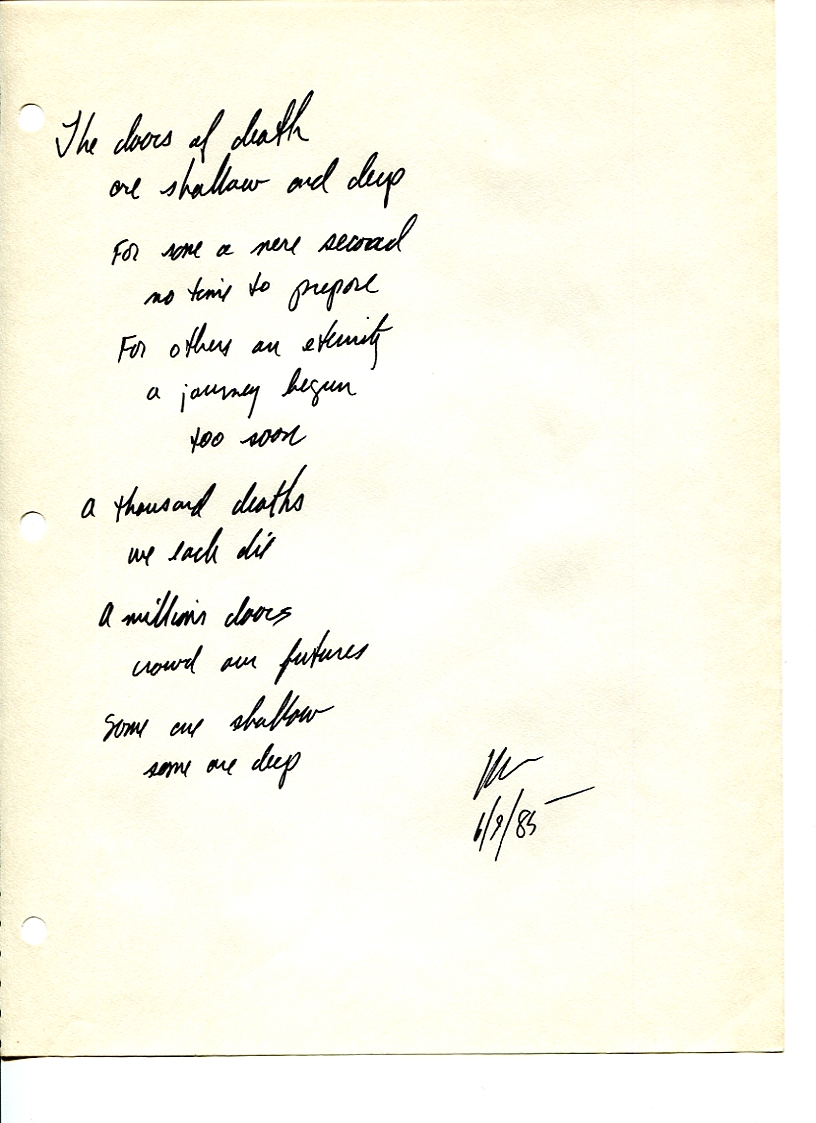 The doors of death
are shallow and deep
For some a mere second
no time to prepare
For others an eternity
a journey begun
too soon
A thousand deaths
we each die
A million doors
crowd our futures
Some are shallow
some are deep
6/9/85